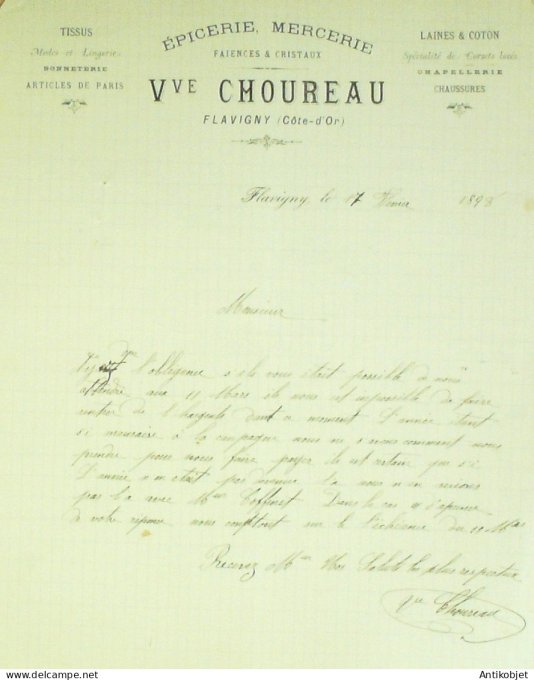 TISSUS
Modes et Lingerie
BONNETERIE
ARTICLES DE PARIS
ÉPICERIE, MERCERIE
FAIENCES & CRISTAUX
VVE CHOUREAU
FLAVIGNY (Côte-d'Or)
LAINES & COTON
Spécialité de Corsets lacés
CHAPELLERIE
CHAUSSURES
Flavigny, le 17 189
Monsieur
l'obligeance si cela vous était possible de nous
attendre au 11 Mars il nous est impossible de faire
rentrer de l'argent dans ce moment L'année étant
si mauvaise à la campagne nous ne savons comment nous
prendre pour nous faire payer
L'année était pas
par la avec Mme Dans le cas
de votre réponse nous comptons sur le l'échéance du 11 Mars
Recevez Mes Saluts les plus respectueux
Vve Choureau
Antikobjet